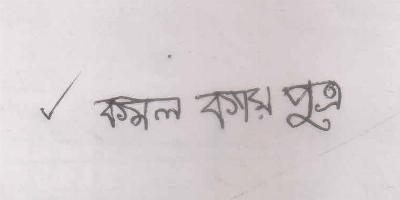 কমল কায় পুত্র